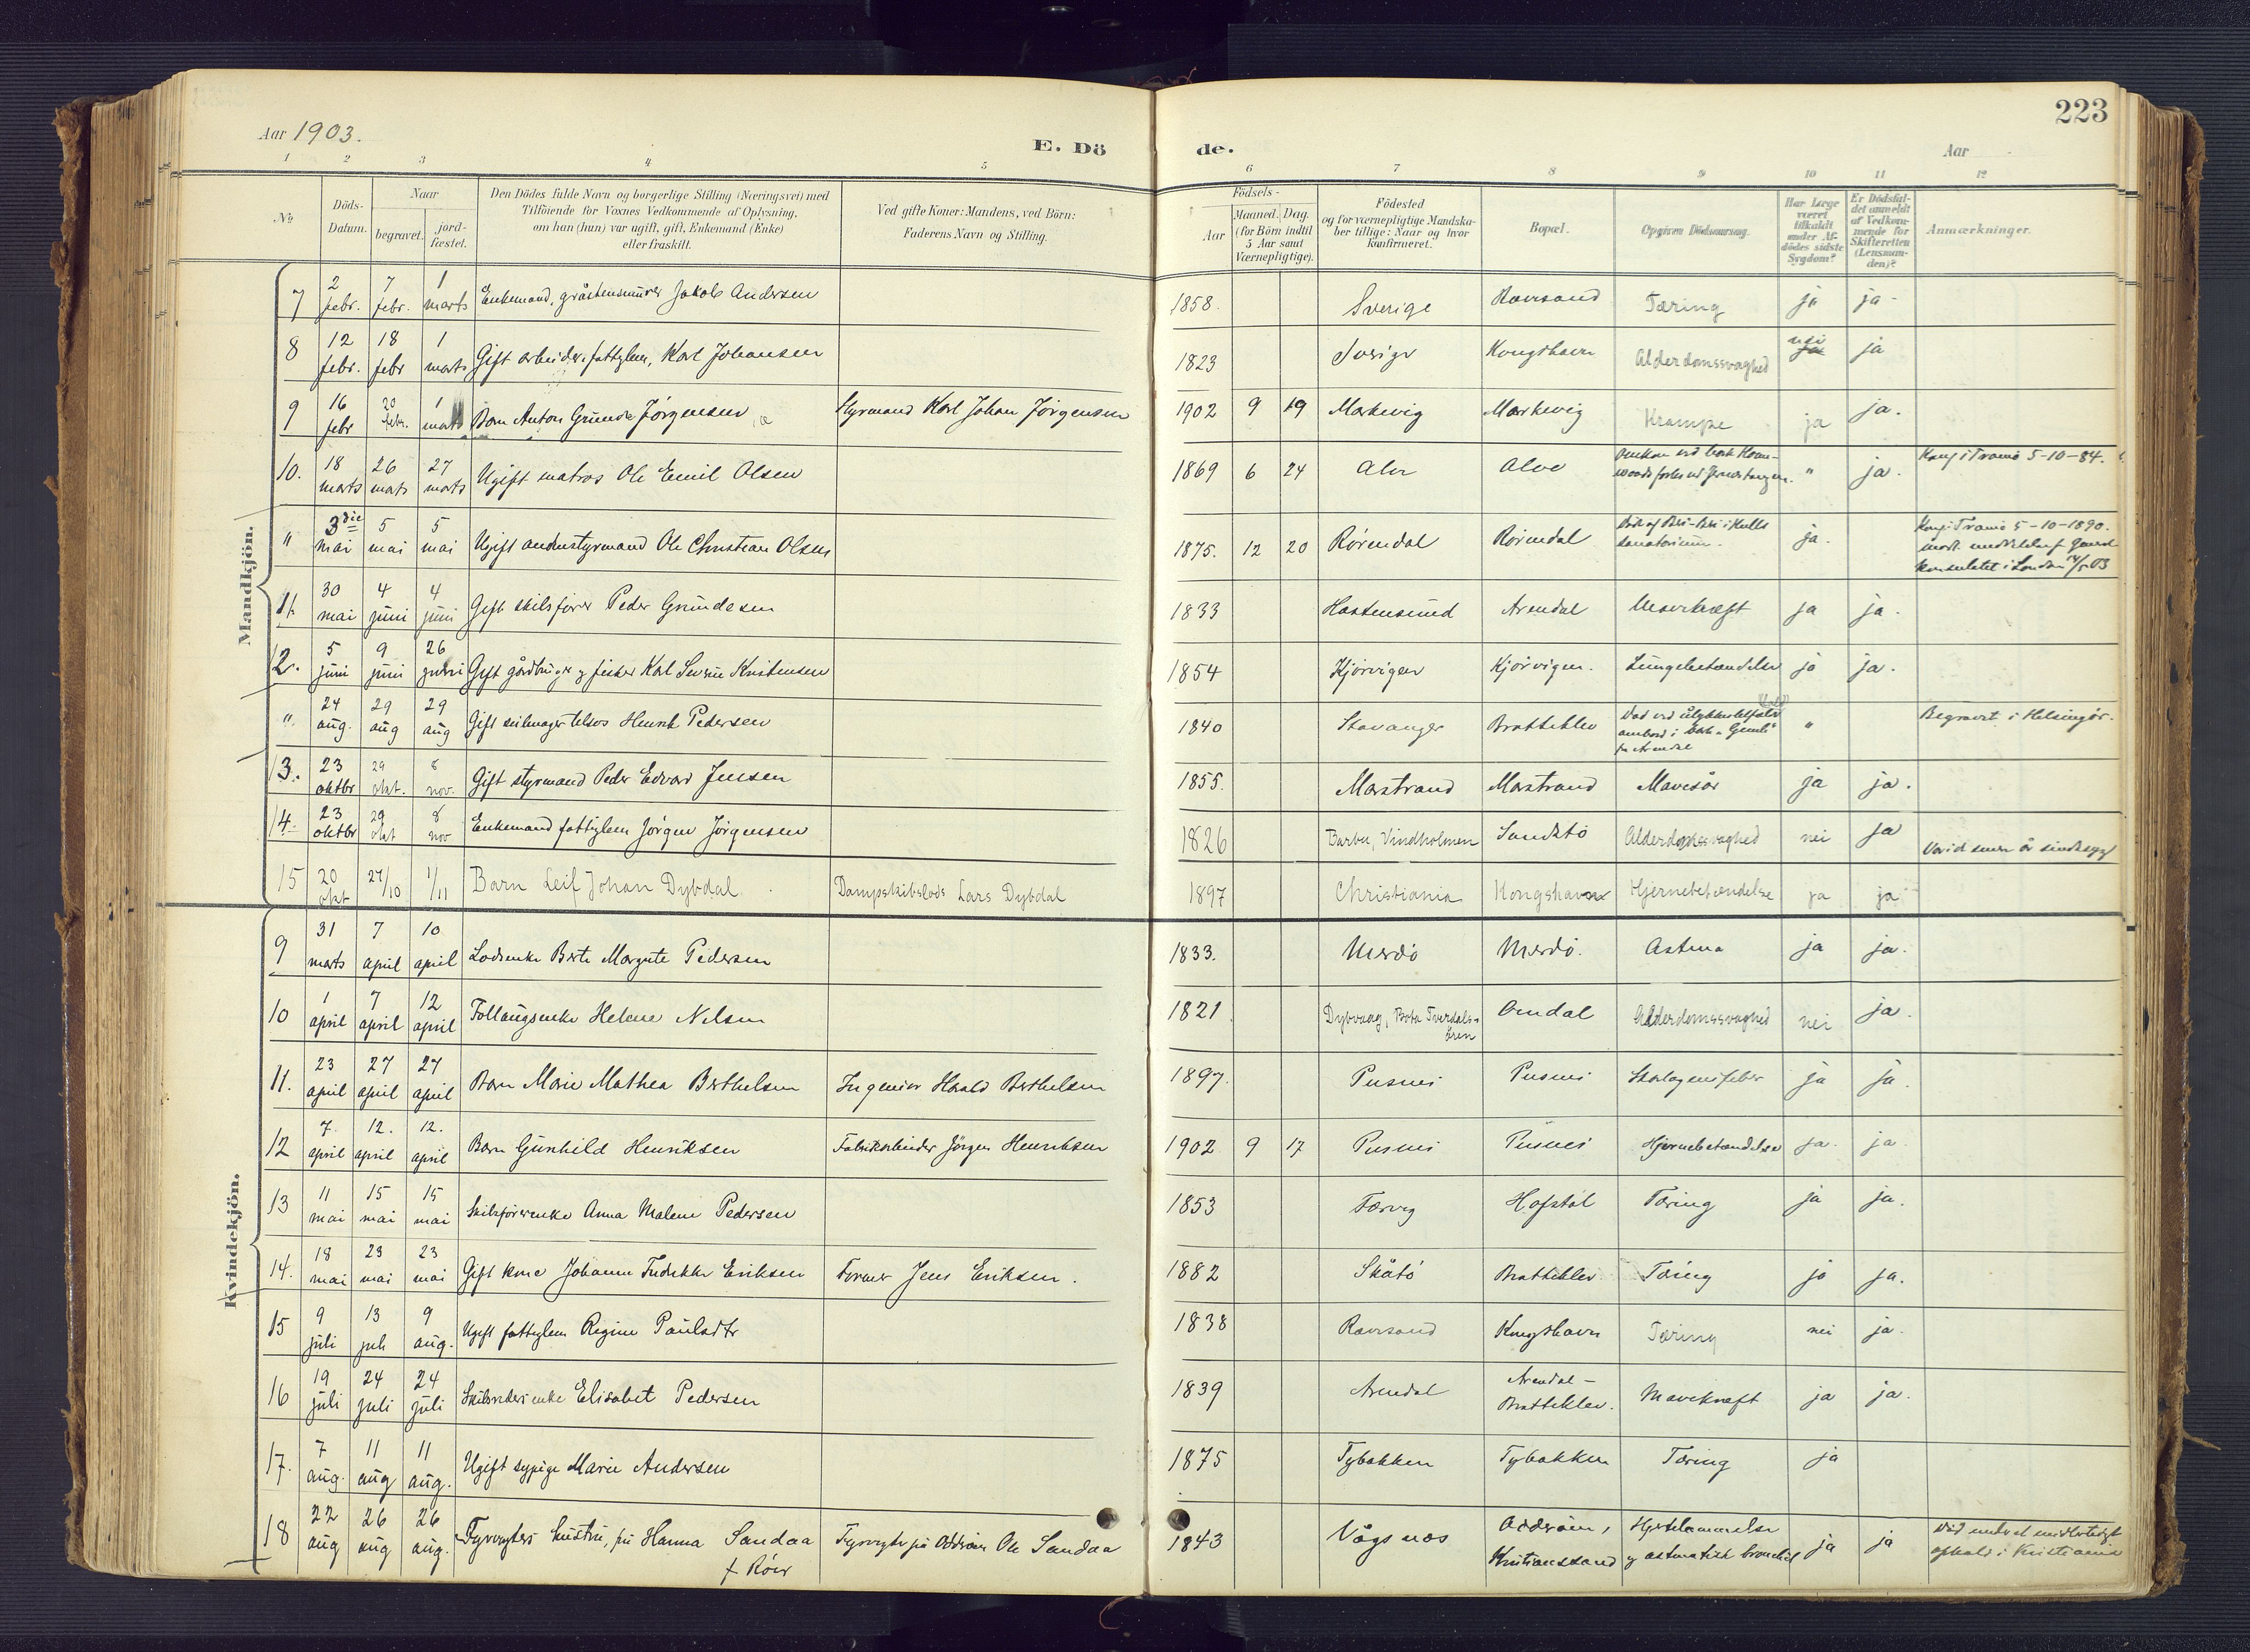 223
Aar 1903.
E. Dö
de.
Aar
1 2 3 4 5 6 7 8 9 10 11 12
No
Döds-
Datum.
Naar
begravet.
jord-
fæstet.
Den Dödes fulde Navn og borgerlige Stilling (Næringsvei) med
Tilföiende for Voxnes Vedkommende af Oplysning,
om han (hun) var ugift, gift, Enkemand (Enke)
eller fraskilt.
Ved gifte Koner: Mandens, ved Börn:
Faderens Navn og Stilling.
Födsels-
Aar
Maaned. Dag.
(for Börn indtil
5 Aar samt
Værnepligtige).
Födested
og for værnepligtige Mandska-
ber tillige: Naar og hvor
konfirmeret.
Bopæl.
Opgiven Dödsaarsag.
Har Læge
været
tilkaldt
under Af-
dödes sidste
Sygdom?
Er Dödsfal-
det anmeldt
af Vedkom-
mende for
Skifteretten
(Lensman-
den)?
Anmærkninger.
Mandkjön.
7 2 febr. 7 febr. 1 marts Enkemand, gråstensmurer Jakob Andersen 1858. Sverige Ravnsand Tæring ja ja -
8 12 febr. 18 febr 1 marts Gift arbeider, fattiglem, Karl Johansen 1823 Sverige Kongshavn Alderdomssvaghed nei ja
9 16 febr 20 febr. 1 marts Barn Anton Gunda Jørgensen Styrmand Karl Johan Jörgensen 1902 9 19 Markevig Markevig Krampe ja ja.
10. 18 marts 26 marts 27 marts Ugift matros Ole Emil Olsen 1869 6 24 Alve Alve " ja. Konf i Tromö 5-10-84.
" 3die mai 5 mai 5 mai Ugift andenstyrmand Ole Christian Olsen 1875. 12 20 Rörendal Rörendal Död af Beri-Beri i Hulls
sanatorium. ja. Konf i Tromö 5-10-1890.
konsulatet i London 14/5 03
11. 30 mai 4 juni 4 juni Gift skibsförer Peder Gundesen 1833 Hastensund Arendal Mavekræft ja ja.
12. 5 juni 9 juni 26 juni Gift gårdbruger og fisker Karl Severin Kristensen 1854 Kjörvigen Kjörvigen. Lungebetændelse ja ja.
" 24 aug. 29 aug 29 aug Gift seilmager Henrik Pedersen 1840 Stavanger Bratteklev Död ved ulykkestilfælde
ombord i bark "Gimli"
fra Arendal " Begravet i Helsingör.
13. 23 oktbr 29 okt. 8 nov. Gift styrmand Peder Edvard Jensen 1855. Marstrand Marstrand Mavesår ja ja.
14. 23 oktbr 29 okt 8 nov Enkemand fattiglem Jørgen Jørgensen 1826 Barbu, Vindholmen Sandstö Alderdomssvaghed nei ja
15 20 okt 27/10 1/11 Barn Leif Johan Dybdal. Dampskibslods Lars Dybdal 1897 Christiania Kongshavn Hjernebetændelse ja ja
Kvindekjön.
9 31 marts 7 april 10 april Lodsenke Berte Margrete Pedersen 1833. Merdö Merdö. Astma ja ja.
10 1 april 7 april 12 april Follaugsenke Helene Nilsen 1821. Dybvaag, Bota Tverdals-
ören Arendal Alderdomssvaghed nei ja.
11. 23 april 27 april 27 april Barn Marie Mathea Berthelsen Ingeniör Harald Berthelsen 1897. Pusnes Pusnes Skarlagensfeber ja ja.
12 7. april 12. april 12. april Barn Gunhild Henriksen Fabrikarbeider Jörgen Henriksen 1902 9 17 Pusnes Pusnes Hjernebetændelse ja. ja
13 11 mai 15 mai 15 mai Skibsförerenke Anna Malene Pedersen 1853 Færvig Hofstöl Tæring ja ja.
14. 18 mai 23 mai 23 mai Gift kone Johanne Fredrikke Eriksen Former Jens Eriksen. 1882 Skåtö Bratteklev Tæring ja ja.
15 9 juli 13 juli 9 aug. Ugift fattiglem Regine Paulsdtr 1838 Ravnsand Kongshavn Tæring nei ja.
16 19 juli 24 juli 24 juli Skibsreders enke Elisabet Pedersen 1839 Arendal Arendal -
Bratteklev. Mavekræft ja ja.
17. 7 aug. 11 aug 11 aug. Ugift sypige Marie Andersen 1875 Tybakken Tybakken Tæring ja
18 22 aug 26 aug 26 aug. Fyrvogters hustru, fru Hanna Sandaa
f. Röer Fyrvogter på Odderöen Ole Sandaa 1843 Vågsnes Odderöen,
Kristianssand Hjertelammelse
og astmatisk bronchit ja ja Död under et midlertidigt
ophold i Kristiania